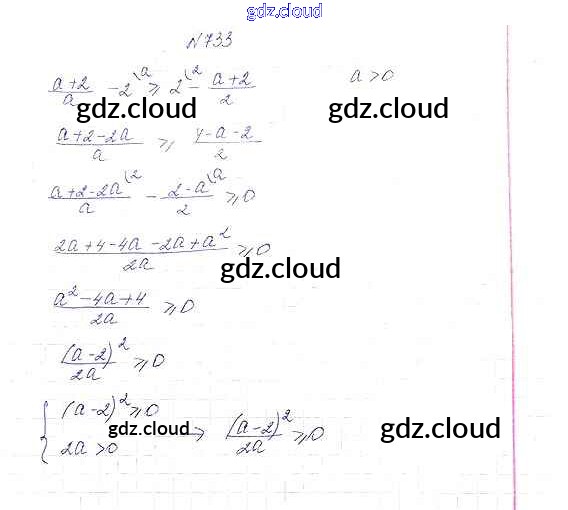 gdz.cloud
N 733
(a+2)/a - 2 \a ≥ 2 \2 - (a+2)/2     a > 0
gdz.cloud gdz.cloud
(a+2-2a)/a ≥ (4-a-2)/2
(a+2-2a)/a \2 - (2-a)/2 \a ≥ 0
(2a+4-4a-2a+a²)/2a ≥ 0
gdz.cloud
(a²-4a+4)/2a ≥ 0
(a-2)²/2a ≥ 0
{ (a-2)² ≥ 0
2a > 0 → (a-2)²/2a ≥ 0
gdz.cloud gdz.cloud